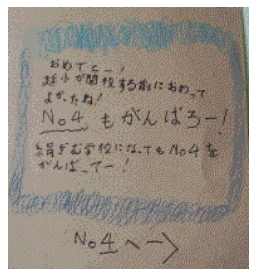 おめでとー!
延小が閉校する前におわって
よかったね!
No4 もがんばろー!
絹ぎむ学校になってもNo4を
がんばってー!
No4へ→